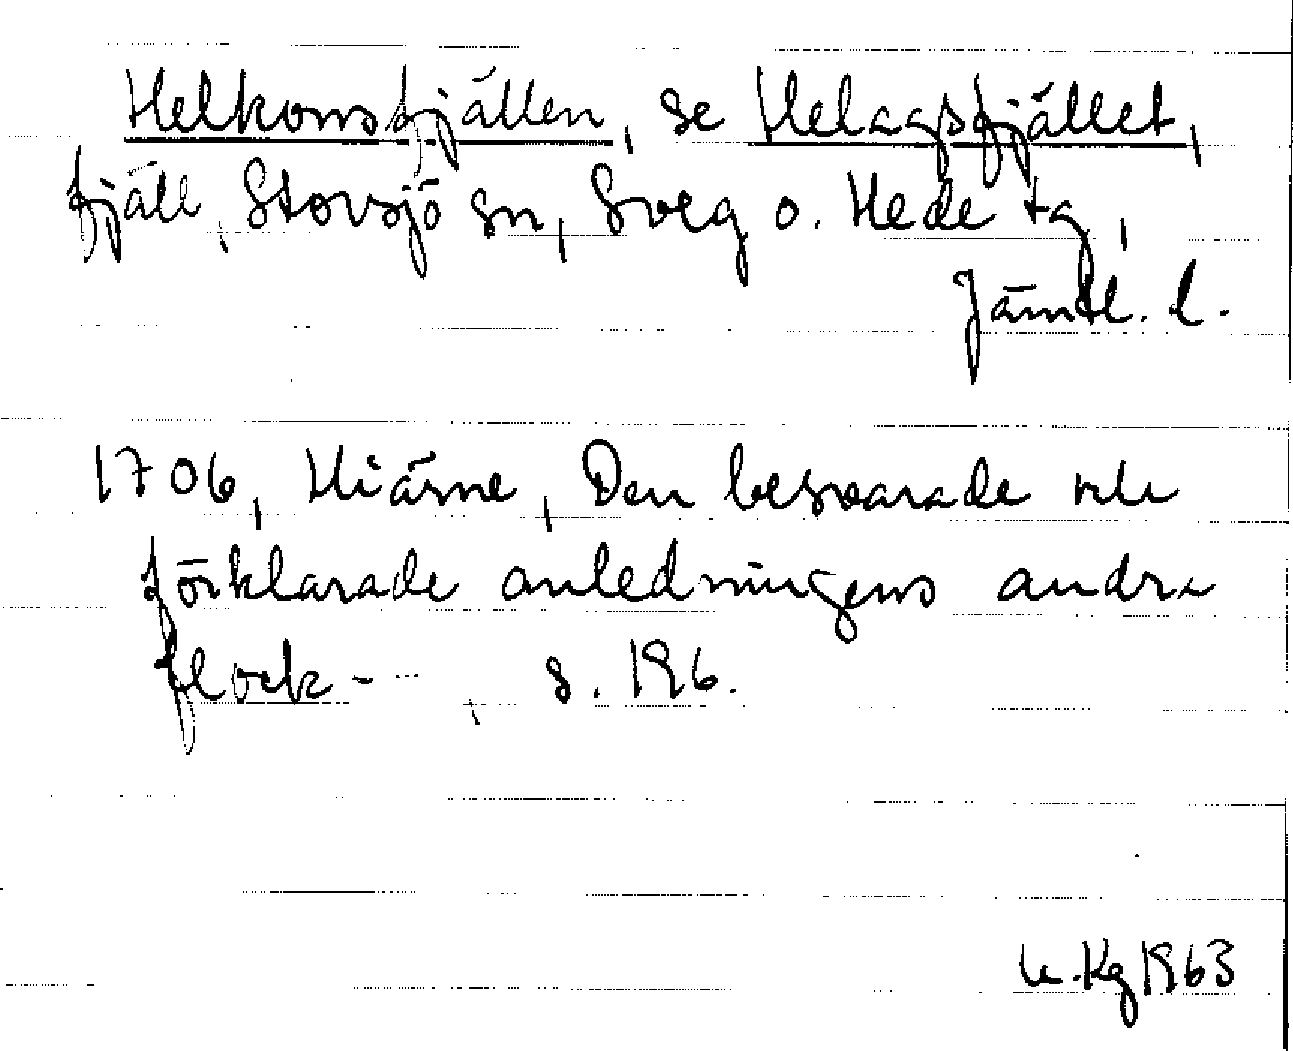 Helkonsfjällen, se Helagsfjället,
fjäll, Storsjö sn, Sveg o. Hede tg,
Jämtl. l.
1706, Hiärne, Den besvarade och
förklarade anledningens andra
flock - ... , s. 196.
Kg 1963